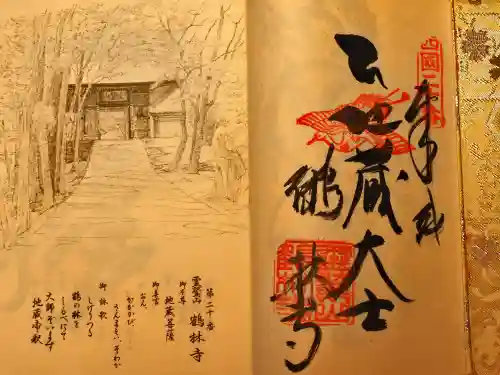 奉
地蔵大士
鶴林寺
第二十番
霊鷲山 鶴林寺
御本尊 地蔵菩薩
御真言
おん、
かかかび
さんまえい、そわか
御詠歌
しげりつる
鶴の林を
しるべにて
大師ぞいます
地蔵帝釈